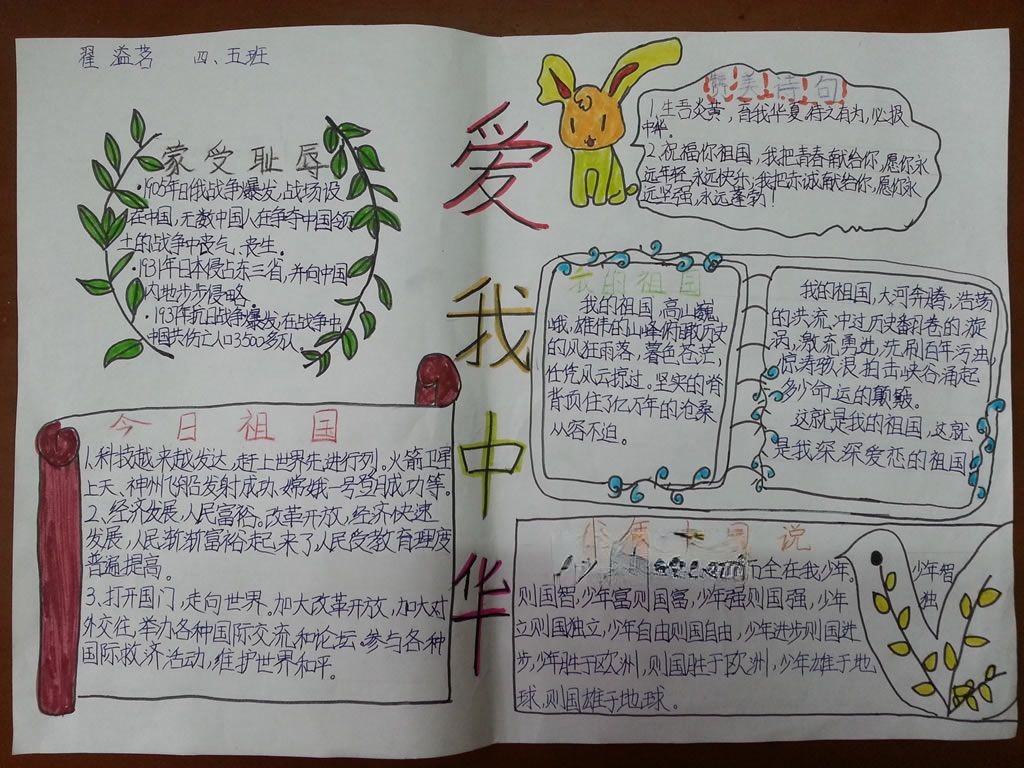 翟溢茗 四、五班
爱我中华
蒙受耻辱
•1905年日俄战争爆发,战场设
在中国,无数中国人在争夺中国领
土的战争中丧气、丧生。
•1931年日本侵占东三省,并向中国
内地步步侵略。
•1937年抗日战争爆发,在战争中
中国共伤亡人口3500多万人。
今日祖国
1、科技越来越发达,赶上世界先进行列。火箭卫星
上天、神州飞船发射成功、嫦娥一号登月成功等。
2、经济发展,人民富裕。改革开放,经济快速
发展,人民渐渐富裕起来了人民受教育程度
普遍提高。
3、打开国门,走向世界。加大改革开放,加大对
外交往,举办各种国际交流和论坛。参与各种
国际救济活动,维护世界和平。
赞美诗句
1、生吾炎黄,育我华夏,待之有为,必报
中华。
2、祝福你祖国,我把青春献给你,愿你永
远年轻,永远快乐;我把赤诚献给你,愿你永
远坚强,永远蓬勃!
我的祖国
我的祖国,高山巍
峨,雄伟的山峰俯瞰历史
的风狂雨落,暮色苍茫,
任凭风云掠过。坚实的脊
背顶住了亿万年的沧桑
从容不迫。
我的祖国,大河奔腾,浩荡
的洪流,冲过历史翻卷的漩
涡,激流勇进,洗刷百年污浊,
惊涛骇浪拍击峡谷涌起
多少命运的颠簸。
这就是我的祖国,这就
是我深深爱恋的祖国
少年中国说
而全在我少年。少年智
则国智,少年富则国富,少年强则国强,少年独
立则国独立,少年自由则国自由,少年进步则国进
步,少年胜于欧洲,则国胜于欧洲,少年雄于地
球,则国雄于地球。